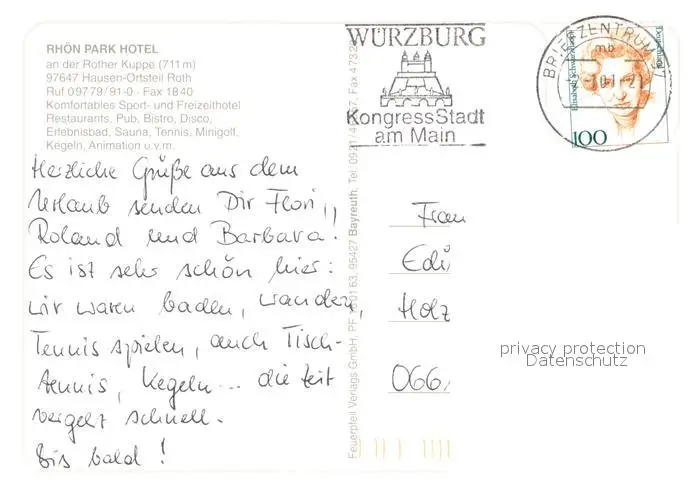 RHÖN PARK HOTEL
an der Rother Kuppe (711 m)
97647 Hausen-Ortsteil Roth
Ruf 0 97 79 / 91-0 · Fax 18 40
Komfortables Sport- und Freizeithotel
Restaurants, Pub, Bistro, Disco,
Erlebnisbad, Sauna, Tennis, Minigolf,
Kegeln, Animation u.v.m.
Herzliche Grüße aus dem
Urlaub senden Dir Flori,
Roland und Barbara!
Es ist sehr schön hier:
wir waren baden, wandern,
Tennis spielen, auch Tisch-
tennis, Kegeln... die Zeit
vergeht schnell.
Bis bald!
Feuerpfeil Verlags GmbH, PF 10 01 63, 95427 Bayreuth, Tel. 0921/
WÜRZBURG
KongressStadt
am Main
BRIEFZENTRUM 97
mb
100
Frau
Edi
Holz
066
privacy protection
Datenschutz